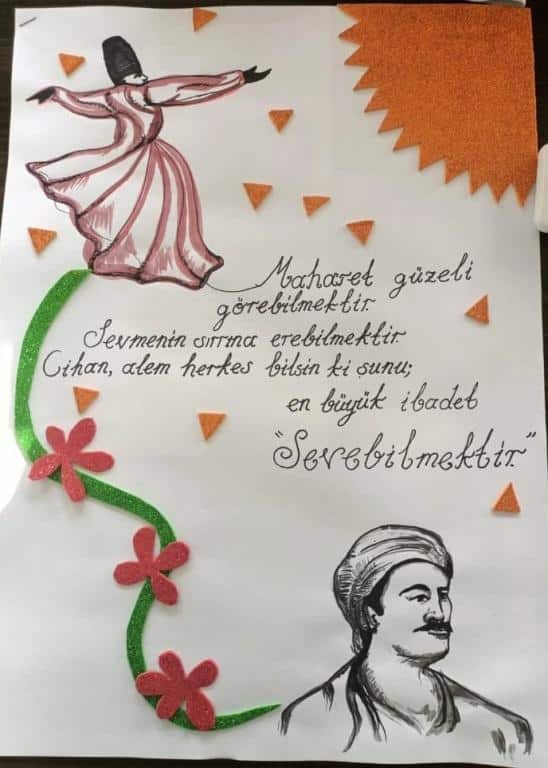 Maharet güzeli
görebilmektir.
Sevmenin sırrına erebilmektir.
Cihan, alem herkes bilsin ki şunu;
en büyük ibadet
"Sevebilmektir."